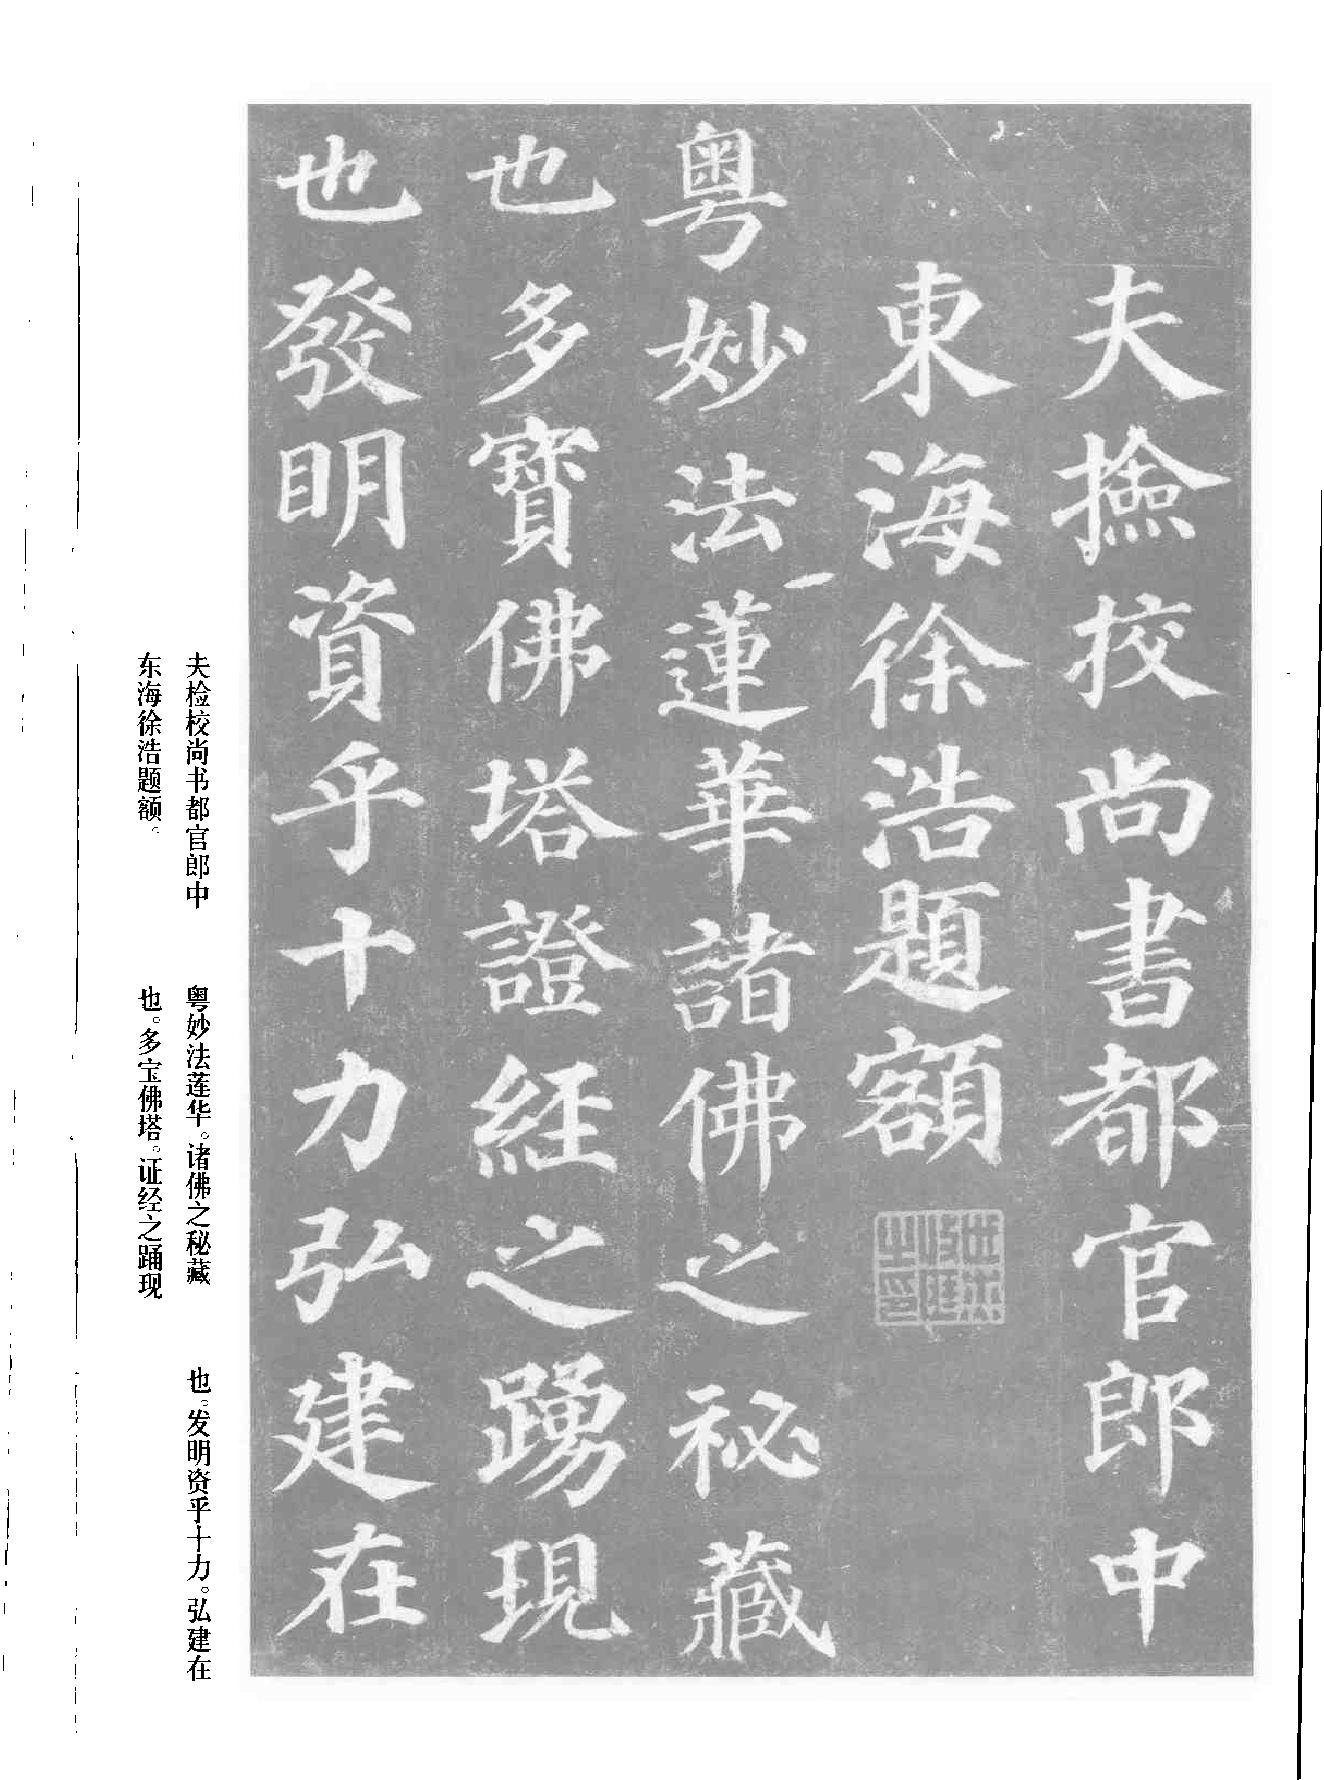 夫撿挍尚書都官郎中
東海徐浩題額
粵妙法蓮華諸佛之祕藏
也多寶佛塔證經之踴現
也發明資乎十力弘建在
夫检校尚书都官郎中
东海徐浩题额。
粤妙法莲华。诸佛之秘藏
也。多宝佛塔。证经之踊现
也。发明资乎十力。弘建在